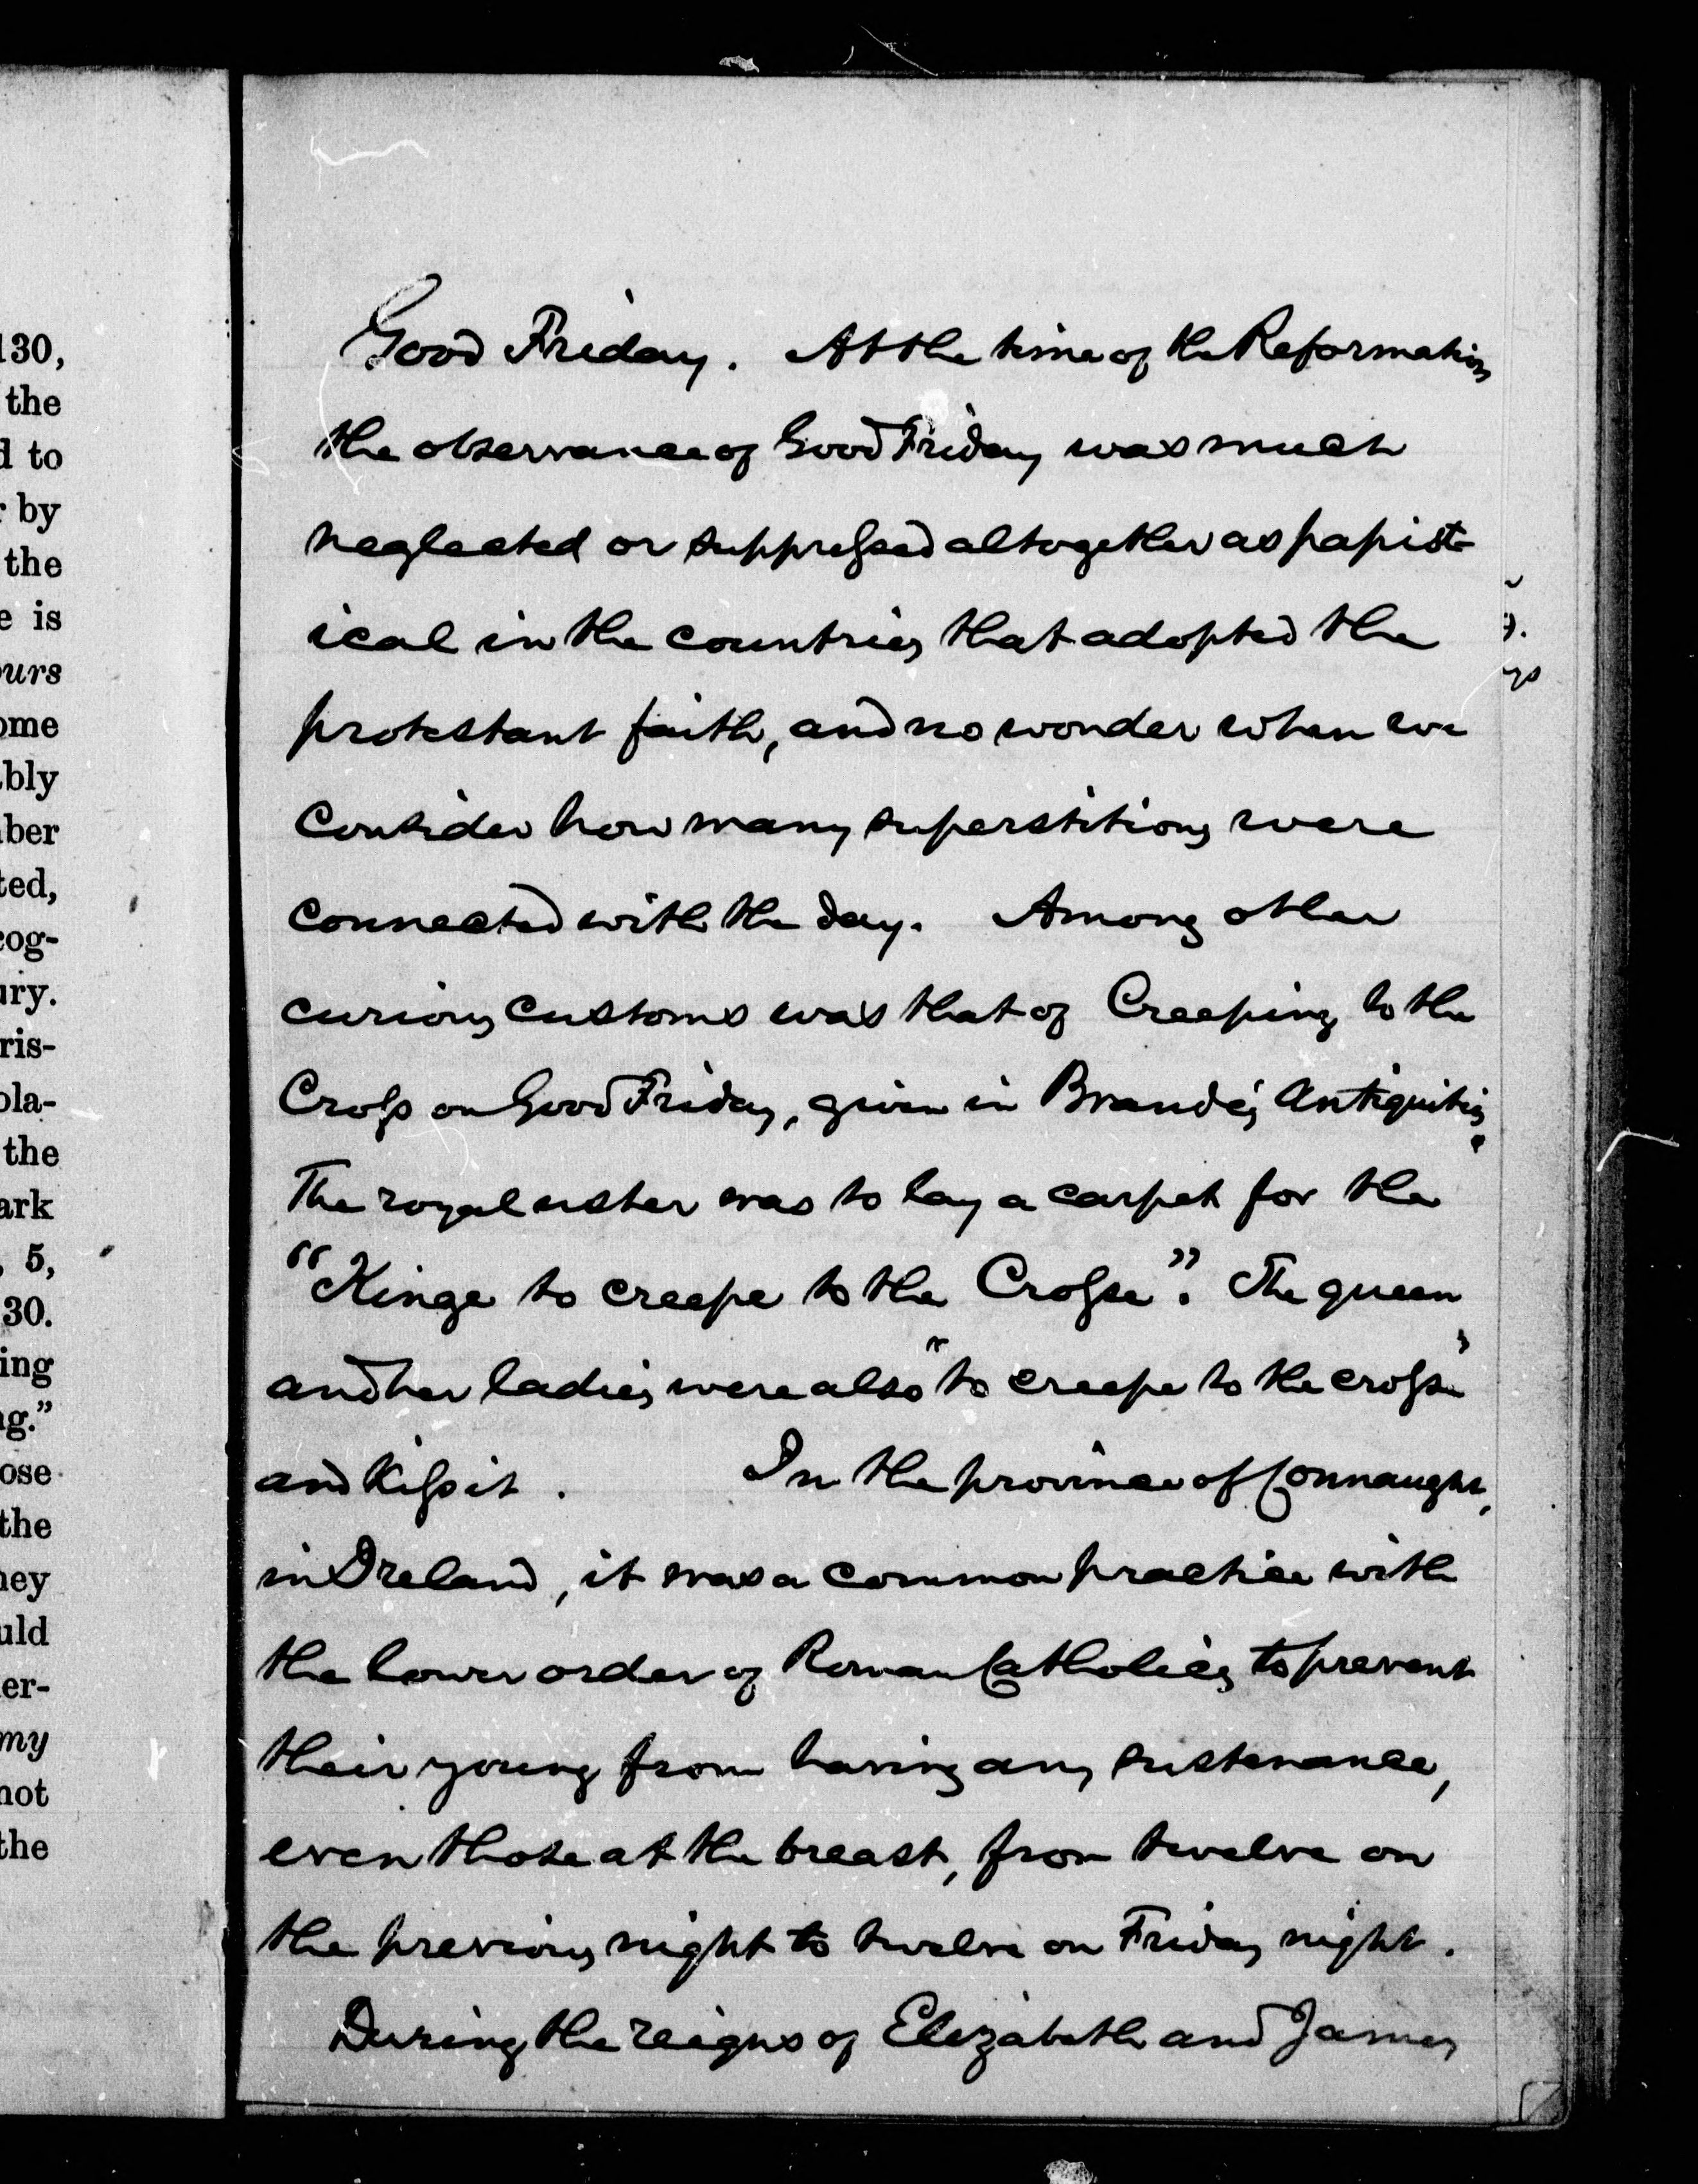 130,
the
d to
r by
the
e is
ours
ome
ably
nber
ted,
cog-
ury.
ris-
ola-
the
ark
, 5,
30.
ing
ng."
ose
the
hey
uld
er-
my
not
the
Good Friday. At the time of the Reformation
the observance of Good Friday was much
neglected or suppressed altogether as papist-
ical in the countries that adopted the
protestant faith, and no wonder when we
consider how many superstitions were
connected with the day. Among other
curious customs was that of Creeping to the
Cross on Good Friday, given in Brande's Antiquities.
The royal usher was to lay a carpet for the
"Kinge to creepe to the Crosse". The queen
and her ladies were also "to creepe to the crosse"
and kiss it. In the province of Connaught,
in Ireland, it was a common practice with
the lower order of Roman Catholics to prevent
their young from having any sustenance,
even those at the breast, from twelve on
the previous night to twelve on Friday night.
During the reigns of Elizabeth and James